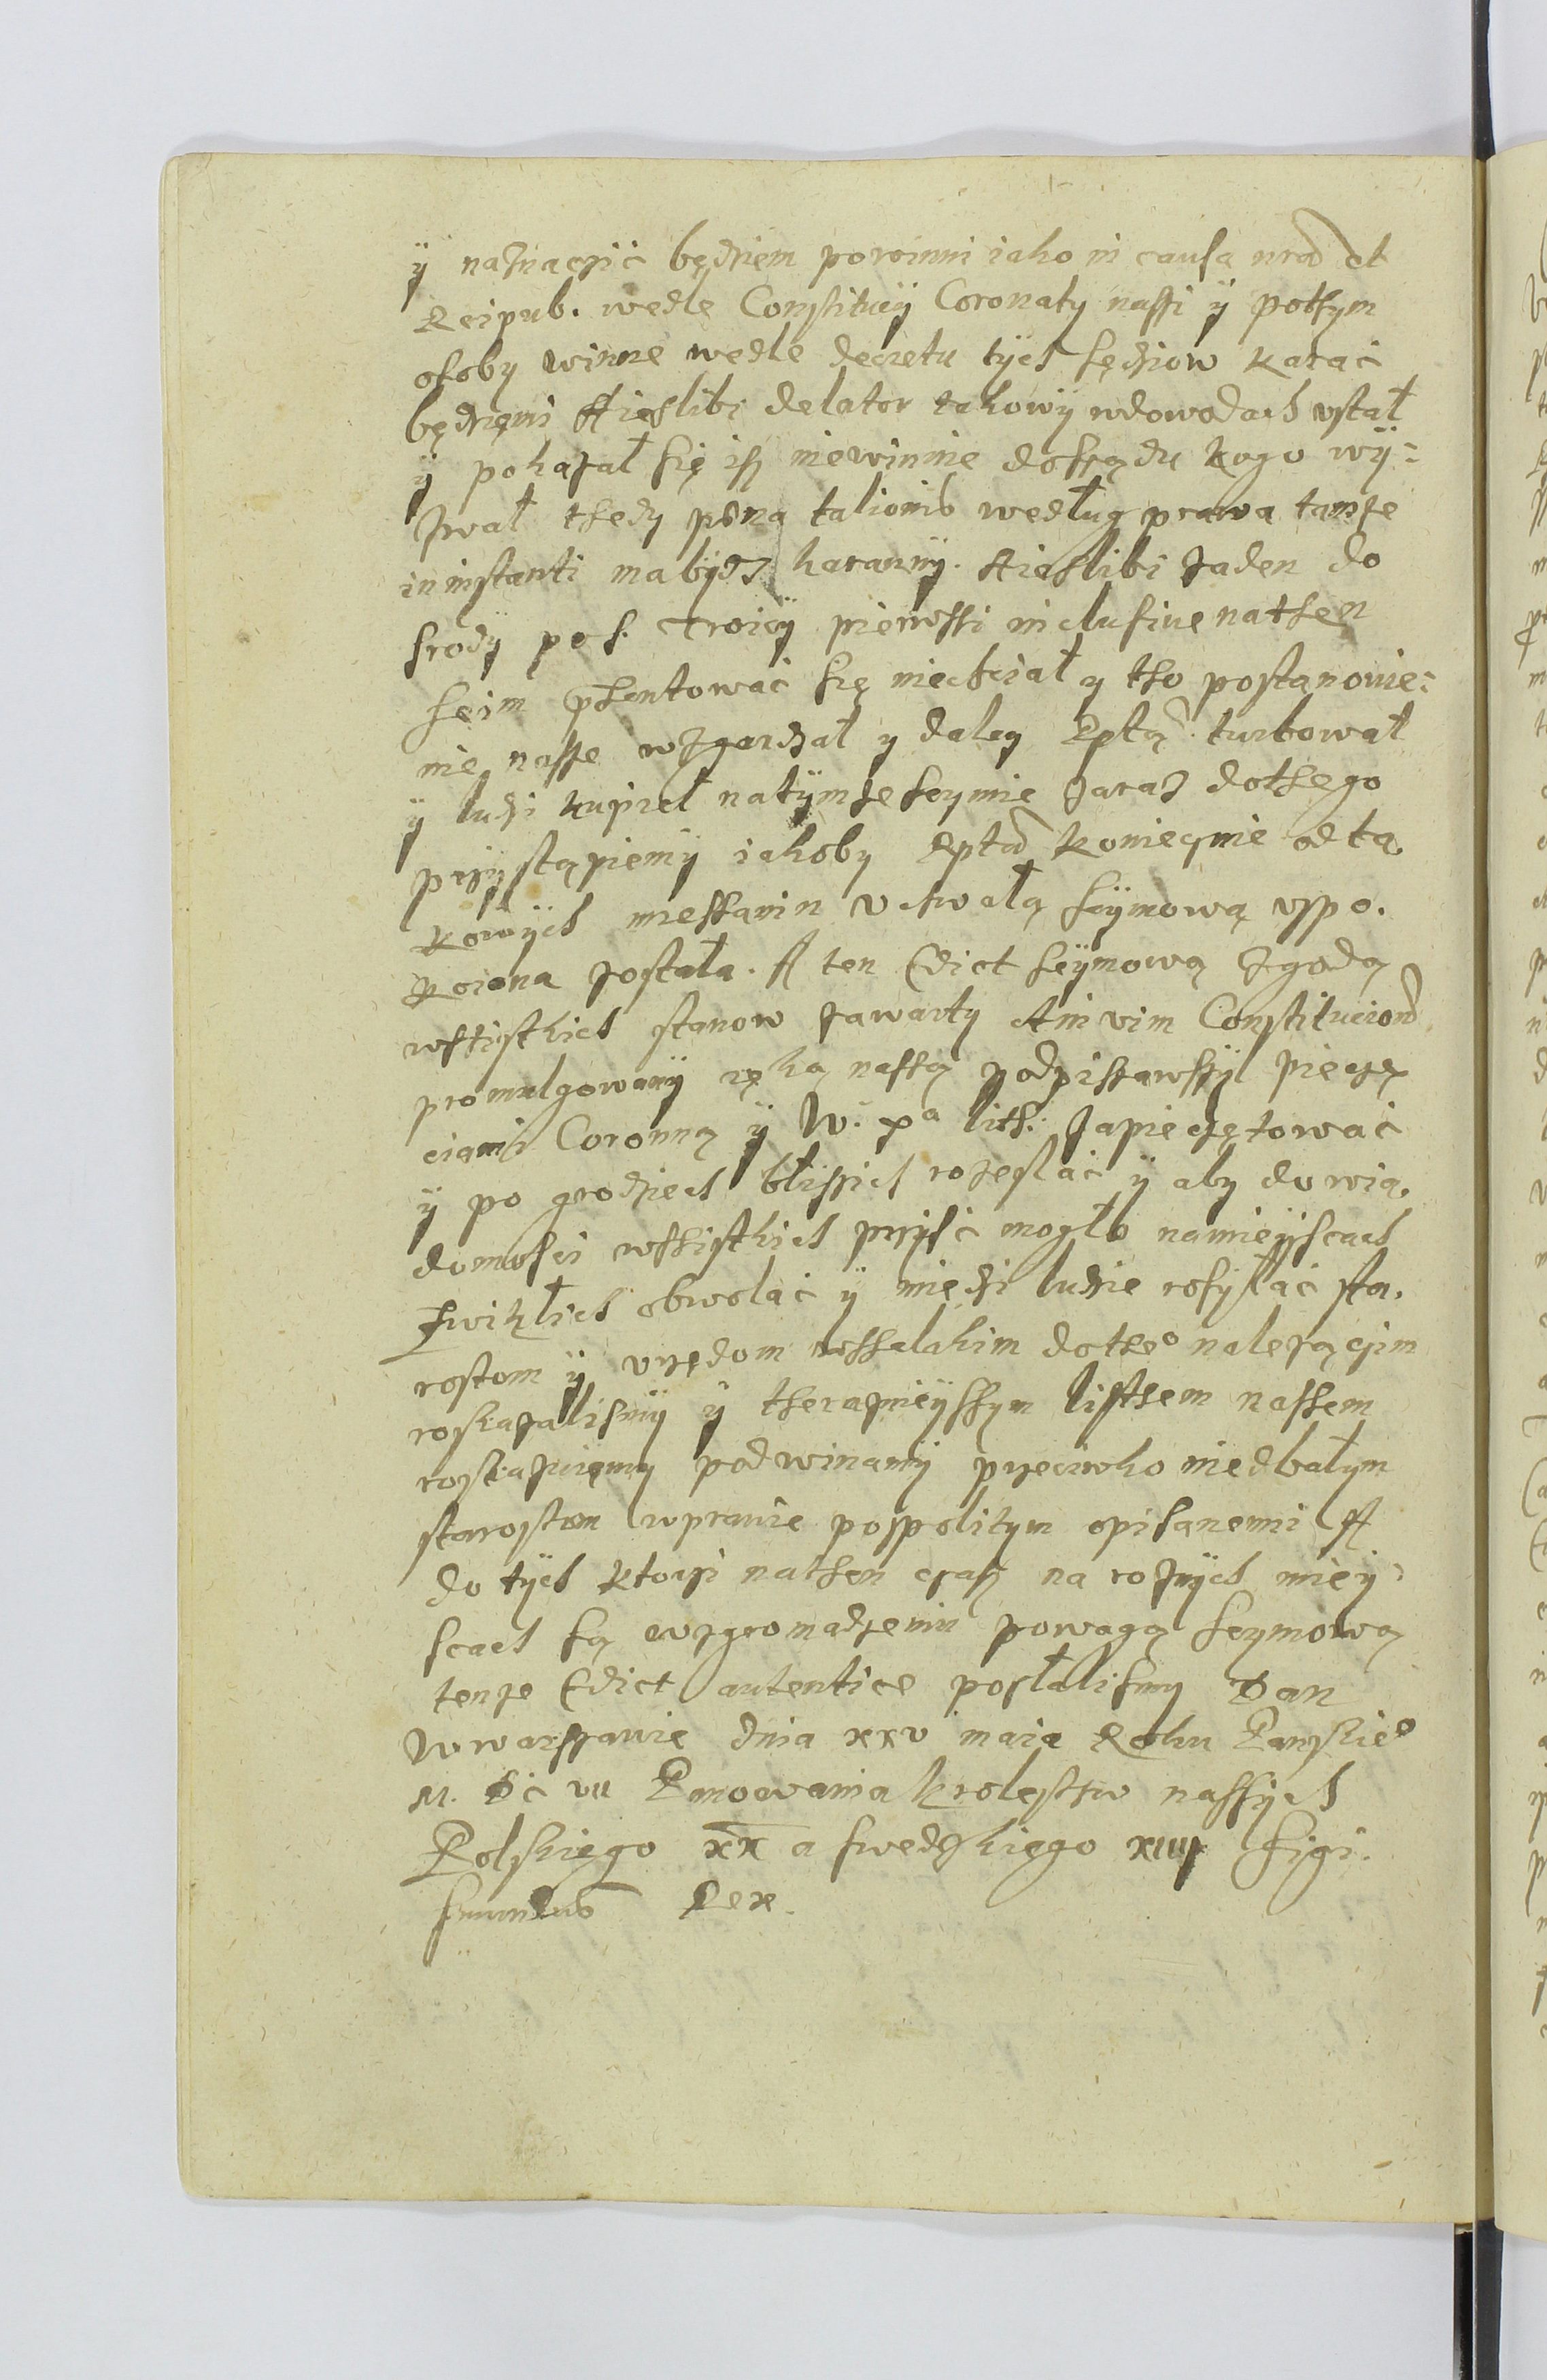 ÿ naznaczić będziem powinni iako in causa nrã et
Reipub. wedle Constitucÿ Coronatÿ naszi ÿ pothym
osoby winne wedle decretu tÿch sędziow karać
będziemi A ieslibi delator takowÿ wdowodach vstał
ÿ pokazał się isz niewinnie dosządu kogo wÿ=
zwał thedy pœna talionis według prawa tamże
in instanti ma bÿdz karannÿ. A ieslibi żaden do
srody po s. Troicÿ pierwszi inclusiue nathen
seim pszentować się niechciał y tho postanowie=
nie nasze wzgardzał y daley Rptą turbował
ÿ ludzi kupieł natÿmże seymie zaraz dothego
przÿstąpiemÿ iakoby Rptã koniecznie od ta
kowÿch mieszanin vchwałą seÿmową vspo.
koiona została. A ten Edict seÿmową zgodą
wszistkich stanow zawarty A in vim Constitucionã
promulgowanÿ ręką naszą podpisawszÿ pieczę
ciami Coronną ÿ W. xa lith. zapieczętować
ÿ po grodziech bliszich rozesłać ÿ aby do wia.
domosci wszistkich przÿść mogło namieÿscach
zwikłich obwołać ÿ miedzi ludzie rosyłać sta.
rostom ÿ vrzędom wszelakim dotheo należączim
roskazalismÿ ÿ therazniejszym listhem naszem
roskazuiemy podwinamÿ przeciwko niedbałym
starostom wprawie pospolitym opisanemi A
do tÿch ktorzi nathen czasz na roznÿch mieÿ=
scach są wzgromadzeniu powagą seymową
tenże Edict autentice posłalismy Dan
Wwarszawie dnia xxv maia Roku Panskieo
M. DC vii Panowania krolestw naszÿch
Polskiego xx a swedzkiego xiiij Sigi.
smundus Rex.